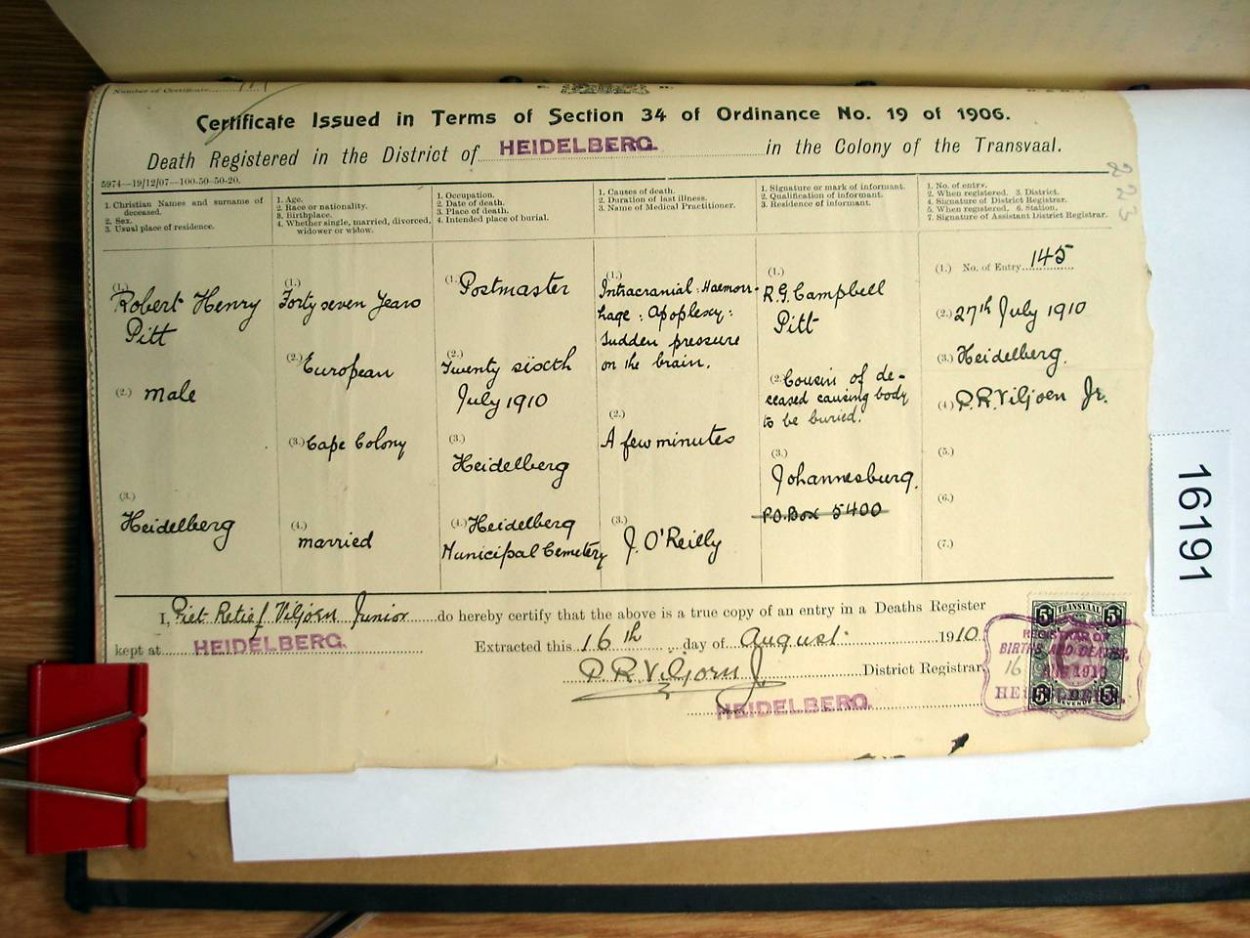 Number of Certificate
Certificate Issued in Terms of Section 34 of Ordinance No. 19 of 1906.
Death Registered in the District of HEIDELBERG. in the Colony of the Transvaal.
5974—19/12/07—100-50-50-20.
223
1. Christian Names and surname of
deceased.
2. Sex.
3. Usual place of residence.
1. Age.
2. Race or nationality.
3. Birthplace.
4. Whether single, married, divorced,
widower or widow.
1. Occupation.
2. Date of death.
3. Place of death.
4. Intended place of burial.
1. Causes of death.
2. Duration of last illness.
3. Name of Medical Practitioner.
1. Signature or mark of informant.
2. Qualification of informant.
3. Residence of informant.
1. No. of entry.
2. When registered. 3. District.
4. Signature of District Registrar.
5. When registered. 6. Station.
7. Signature of Assistant District Registrar.
(1.)
Robert Henry
Pitt
(2.) male
(3.)
Heidelberg
(1.)
Forty seven Years
(2.) European
(3.) Cape Colony
(4.)
married
(1.) Postmaster
(2.)
Twenty sixth
July 1910
(3.)
Heidelberg
(4.) Heidelberg
Municipal Cemetery
(1.)
Intracranial Haemorr-
hage : Apoplexy :
Sudden pressure
on the brain.
(2.)
A few minutes
(3.)
J. O'Reilly
(1.)
R.G. Campbell
Pitt
(2. Cousin of de-
ceased causing body
to be buried.
(3.)
Johannesburg.
P.O. Box 5400
(1.) No. of Entry 145
(2.) 27th July 1910
(3.) Heidelberg.
(4.) P.R. Viljoen Jr.
(5.)
(6.)
(7.)
I, Piet Retief Viljoen Junior do hereby certify that the above is a true copy of an entry in a Deaths Register
kept at HEIDELBERG. Extracted this 16th day of August 1910
P.R. Viljoen J. District Registrar.
HEIDELBERG.
TRANSVAAL
5/ 5/
REGISTRAR OF
BIRTHS AND DEATHS.
16 AUG 1910
HEIDELBERG.
5/ 5/
REVENUE
16191